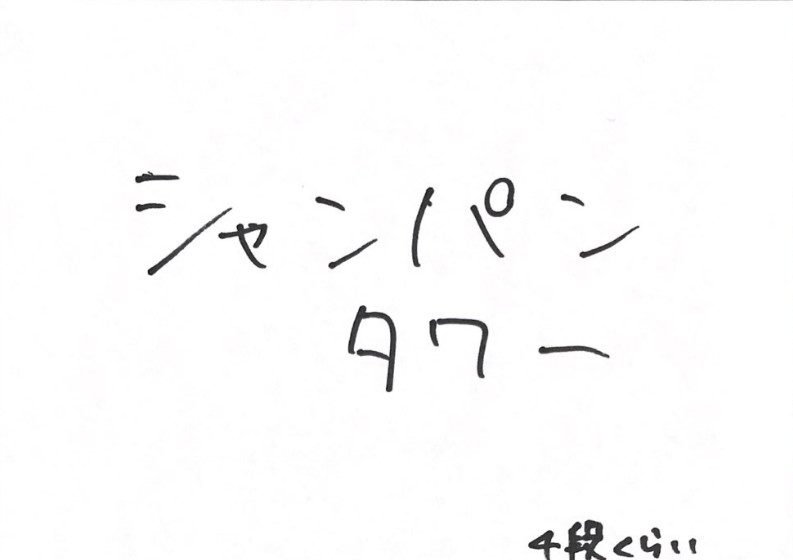 シャンパン
タワー
4段くらい